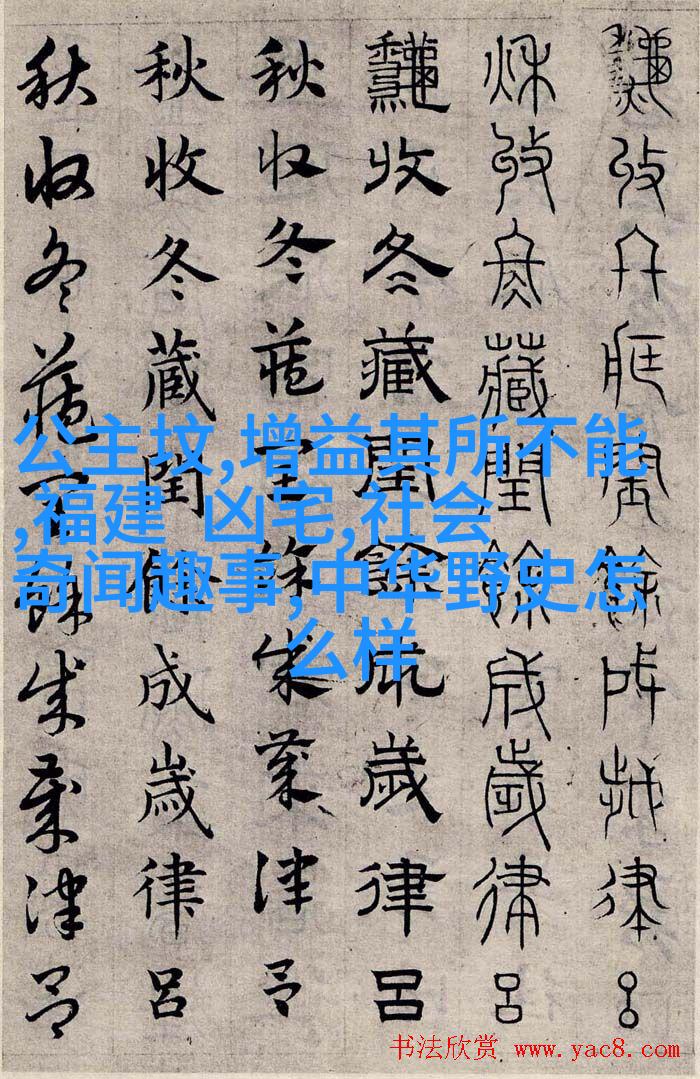 秋收冬藏閏餘成歲律呂
秋收冬藏閏餘成歲律呂
秋收冬藏閏餘成歲律呂
秋收冬藏閏餘成歲律呂
秋收冬藏閏餘成歲律呂
秋收冬藏閏餘成歲律呂
公主坟,增益其所不能
,福建 凶宅,社会
奇闻趣事,中华野史怎
么样
书法欣赏 www.yac8.com